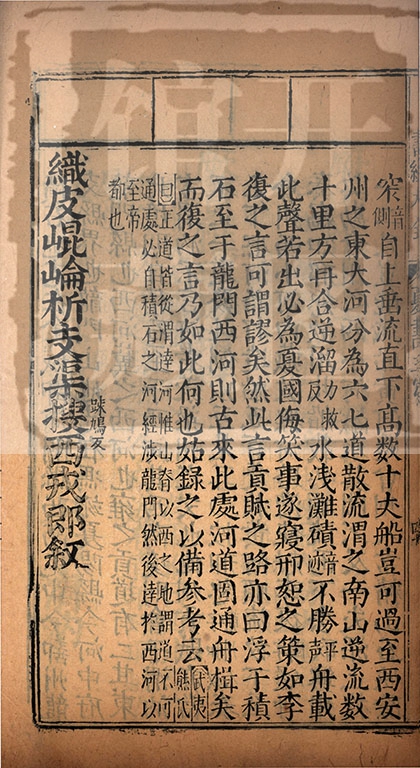 窄音側自上垂流直下高數十丈船豈可過至西安
州之東大河分為六七道散流渭之南山逆流數
十里方再合逆溜力救反水浅灘磧音迹不勝平聲舟載
此聲若出必為夏國侮笑事遂寢邢恕之策如李
復之言可謂謬矣然此言貢賦之路亦曰浮于積
石至于龍門西河則古來此處河道固通舟楫矣
而復之言乃如此何也姑錄之以備參考云武夷熊氏
曰正道皆從渭達河惟山脊以西之地謂道不可
通處必自積石之河經涉龍門然後達於西河以
至帝
都也
織皮崐崘析支渠搜踈鳩反西戎即敘